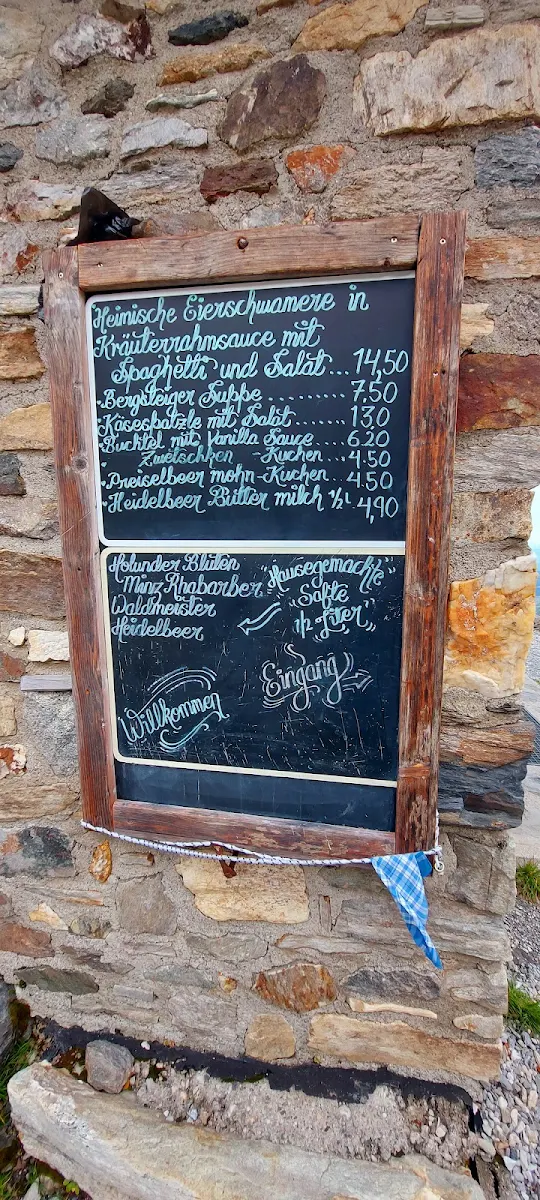 Heimische Eierschwamere in
Kräuterrahmsauce mit
Spaghetti und Salat... 14,50
·Bergsteiger Suppe .......... 7.50
·Käsespatzle mit Salat....... 13,0
·Buchtel mit Vanilla Sauce.... 6.20
· Zwetschken -Kuchen... 4.50
·Preiselbeer mohn-Kuchen... 4.50
·Heidelbeer Butter milch ½ l 4,90
Holunder Blüten
Minz Rhabarber
Waldmeister
Heidelbeer
"Hausegemachte"
Säfte
½ Liter
Eingang
Willkommen